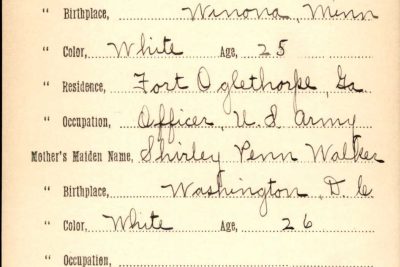 " Birthplace, Wanona, Minn
" Color, White Age, 25
" Residence, Fort Oglethorpe, Ga.
" Occupation, Officer, U.S. Army
Mother's Maiden Name, Shirley Penn Walker
" Birthplace, Washington, D. C.
" Color, White Age, 26
" Occupation,